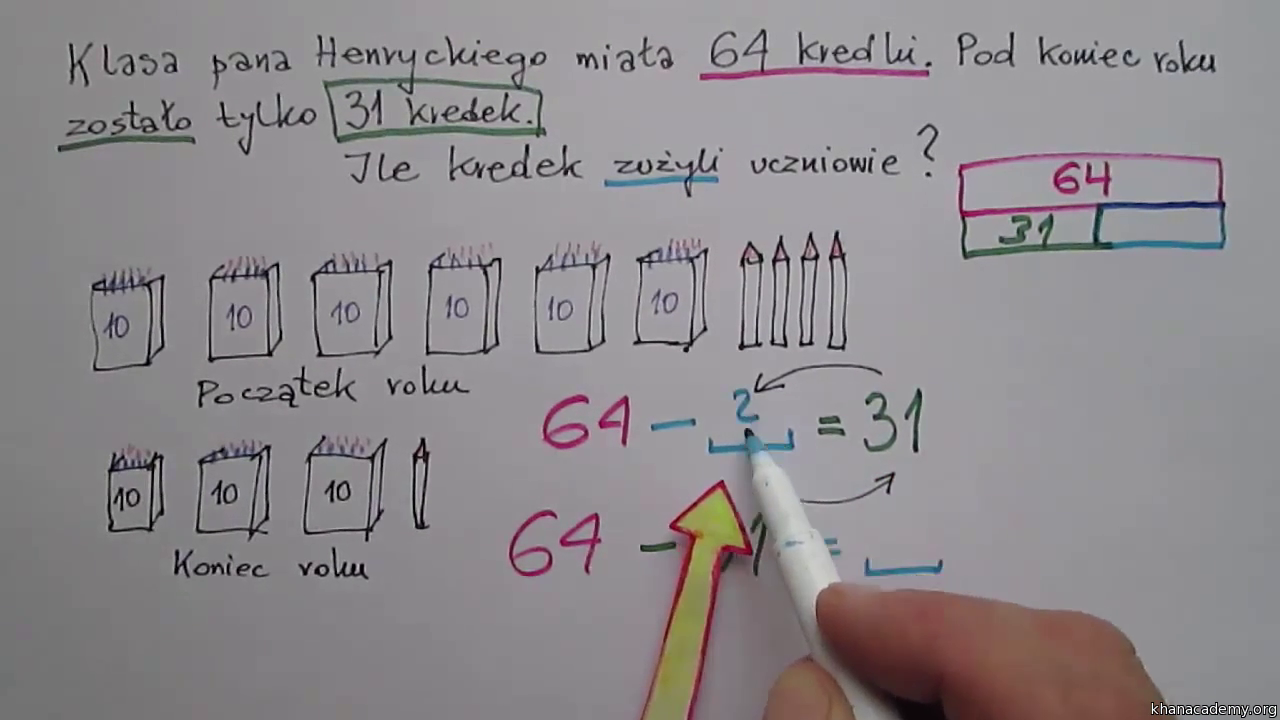 Klasa pana Henryckiego miała 64 kredki. Pod koniec roku
zostało tylko 31 kredek.
Ile kredek zużyli uczniowie?
64
31
10 10 10 10 10 10
Początek roku
64 - ? = 31
10 10 10
Koniec roku
64 - 1 =
khanacademy.org